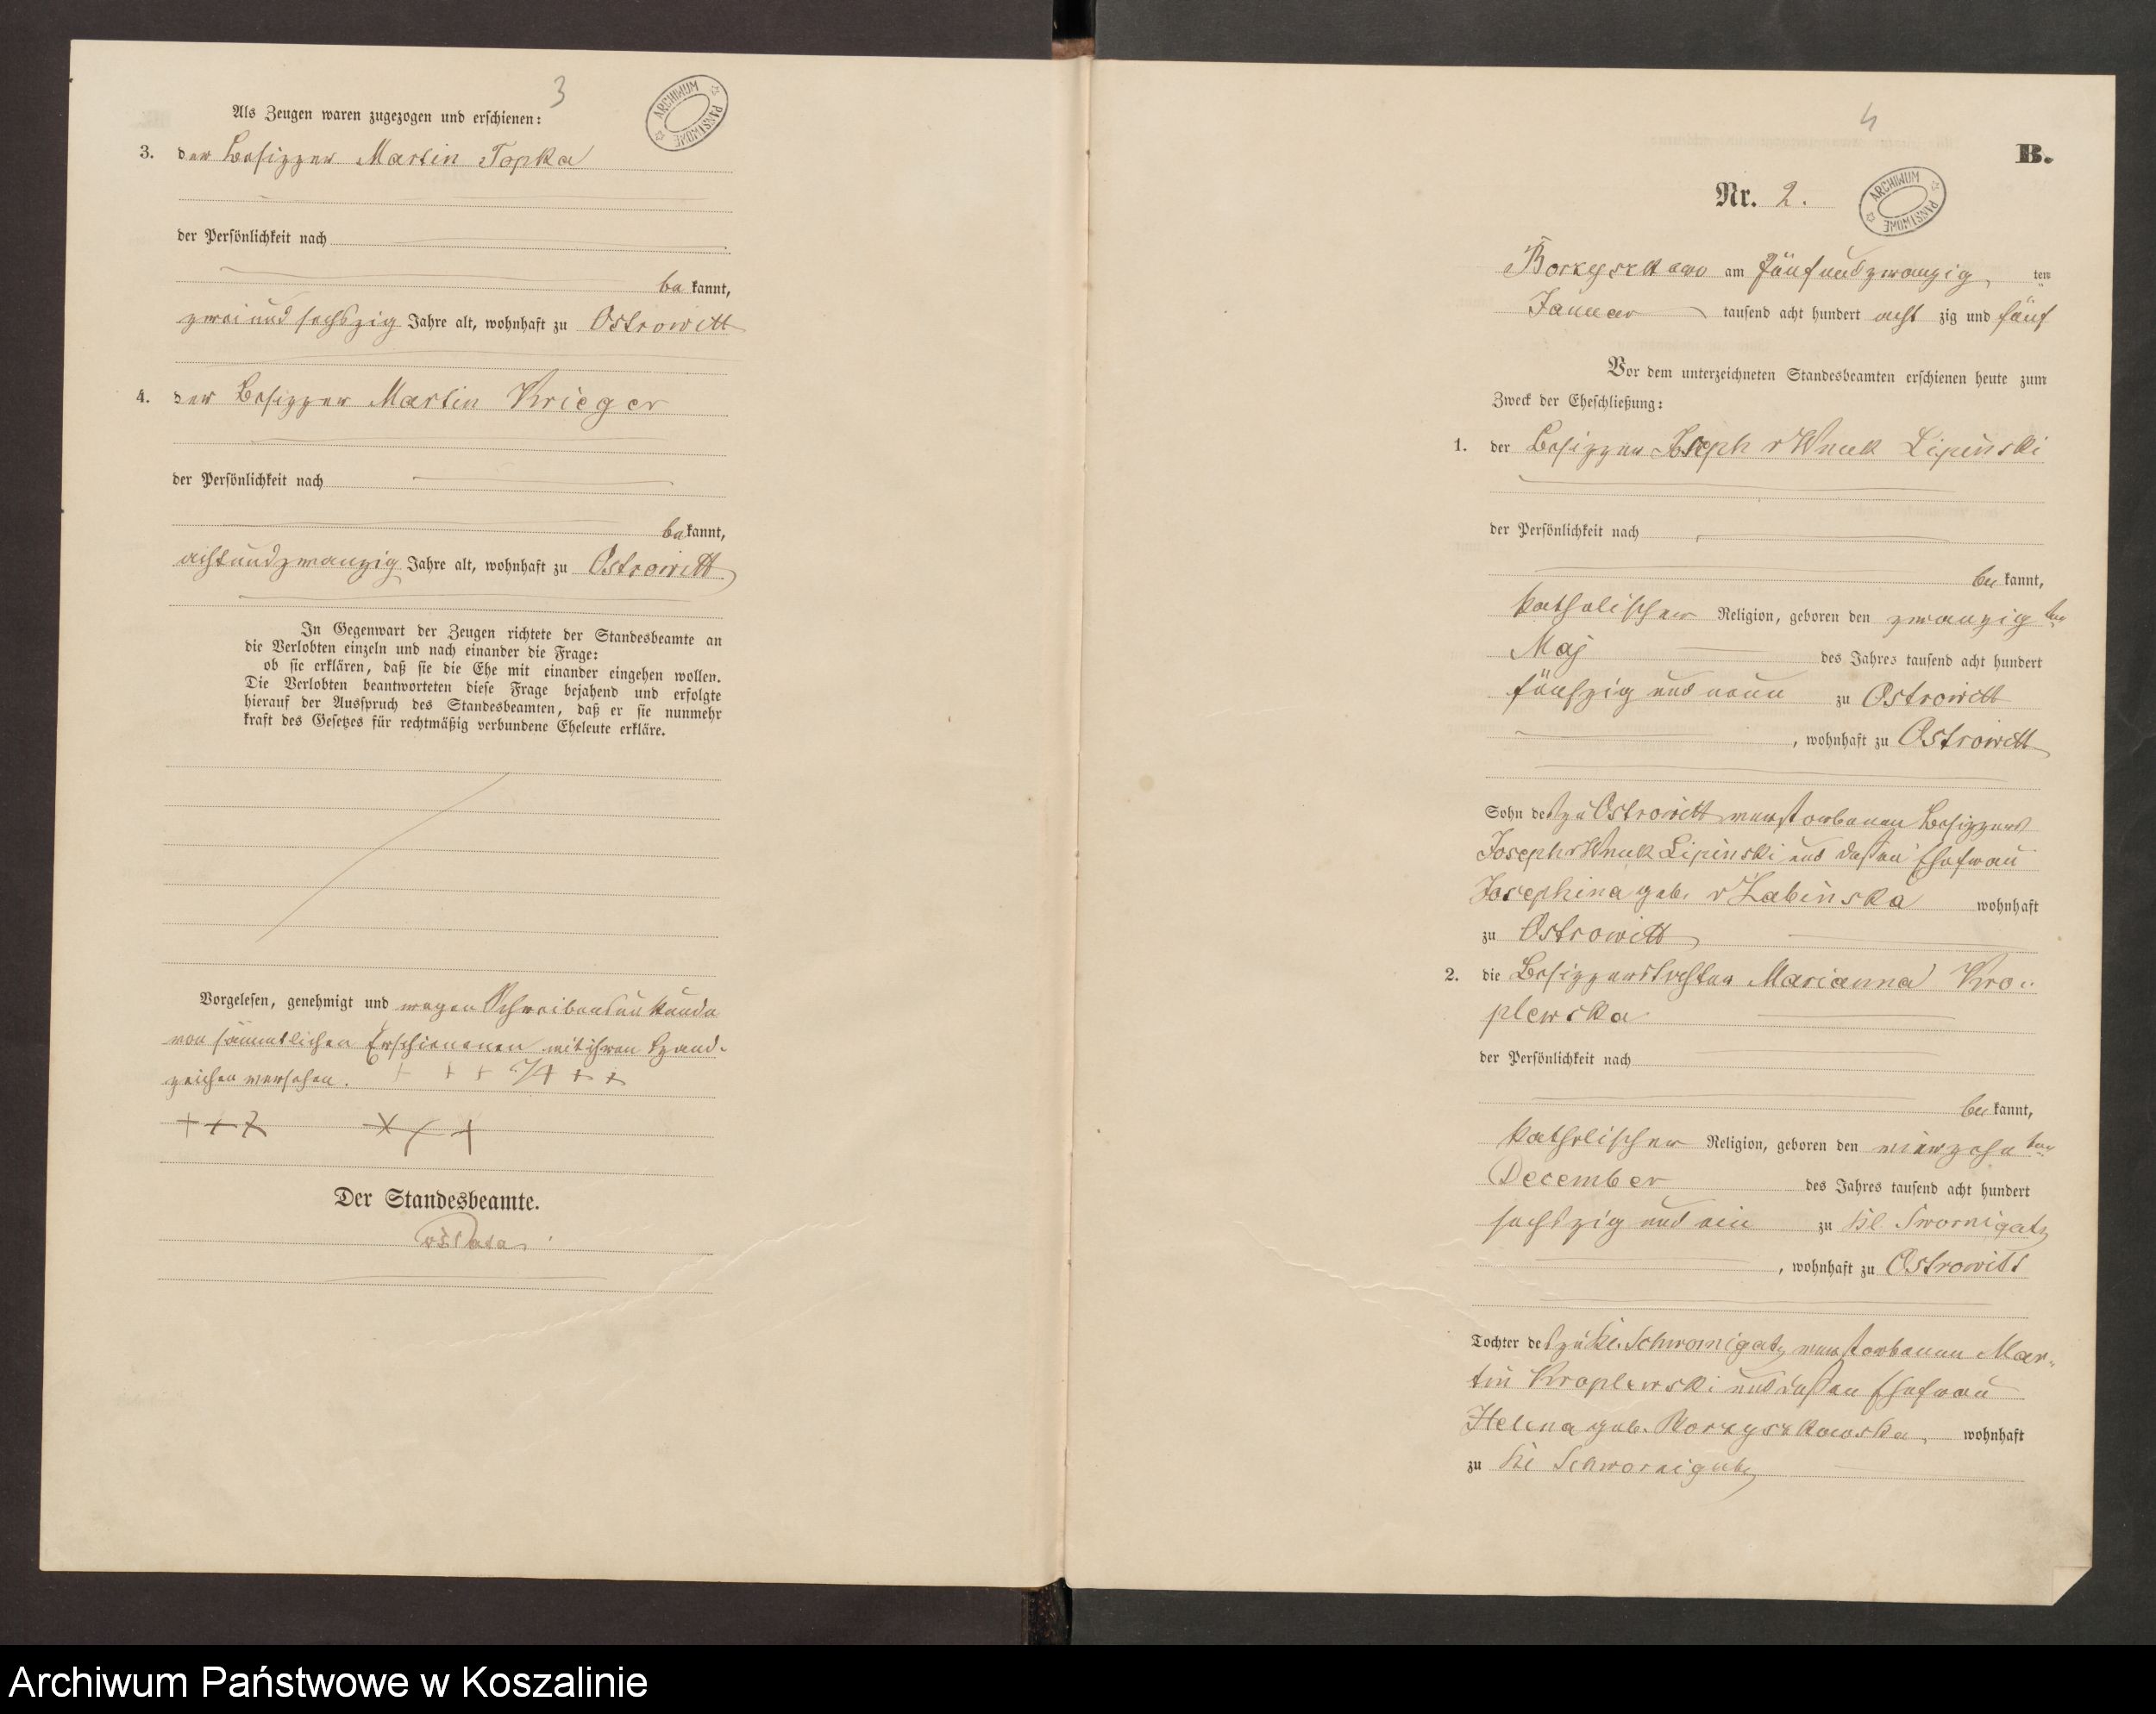 3
Als Zeugen waren zugezogen und erschienen:
ARCHIWUM PAŃSTWOWE
3. der Besitzer Martin Topka
der Persönlichkeit nach
be kannt,
zwei und sechszig Jahre alt, wohnhaft zu Ostrowitt
4. der Besitzer Martin Krieger
der Persönlichkeit nach
be kannt,
achtundzwanzig Jahre alt, wohnhaft zu Ostrowitt
In Gegenwart der Zeugen richtete der Standesbeamte an
die Verlobten einzeln und nach einander die Frage:
ob sie erklären, daß sie die Ehe mit einander eingehen wollen.
Die Verlobten beantworteten diese Frage bejahend und erfolgte
hierauf der Ausspruch des Standesbeamten, daß er sie nunmehr
kraft des Gesetzes für rechtmäßig verbundene Eheleute erkläre.
Vorgelesen, genehmigt und wegen Schreibensunkunde
von sämmtlichen Erschienenen mit ihren Hand-
zeichen versehen. + + + + + +
+ + + + + +
Der Standesbeamte.
4
B.
Nr. 2.
ARCHIWUM PAŃSTWOWE
Borzyszkowo am fünfundzwanzig ten
Januar tausend acht hundert acht zig und fünf
Vor dem unterzeichneten Standesbeamten erschienen heute zum
Zweck der Eheschließung:
1. der Besitzer Joseph v Wnuk Lipinski
der Persönlichkeit nach
be kannt,
katholischer Religion, geboren den zwanzig ten
Maj des Jahres tausend acht hundert
fünfzig und neun zu Ostrowitt
, wohnhaft zu Ostrowitt
Sohn des zu Ostrowitt verstorbenen Besitzers
Joseph v Wnuk Lipinski und dessen Ehefrau
Josephina geb. v Zabinska wohnhaft
zu Ostrowitt
2. die Besitzerstochter Marianna Kro-
plewska
der Persönlichkeit nach
be kannt,
katholischer Religion, geboren den vierzehn ten
December des Jahres tausend acht hundert
sechszig und ein zu Kl. Swornigatz
, wohnhaft zu Ostrowitt
Tochter des zu Kl. Schwornigatz verstorbenen Mar-
tin Kroplewski und dessen Ehefrau
Helena geb. Borzyszkowska, wohnhaft
zu Kl Schwornigatz
Archiwum Państwowe w Koszalinie